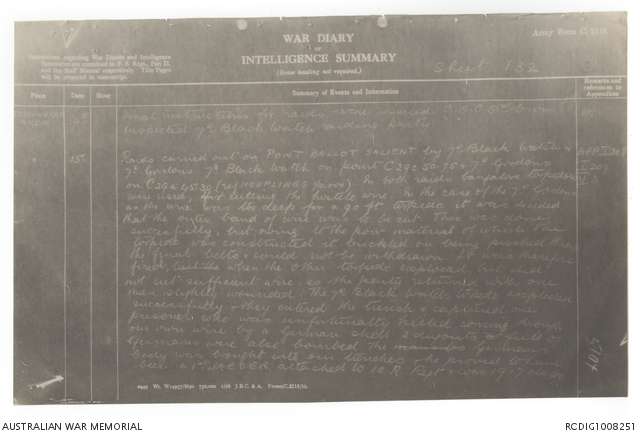 WAR DIARY
or
INTELLIGENCE SUMMARY
(Erase heading not required.)
Army Form C. 2118.
Instructions regarding War Diaries and Intelligence
Summaries are contained in F. S. Regs., Part II.
and the Staff Manual respectively. Title Pages
will be prepared in manuscript.
Sheet 32
Place
Date
Hour
Summary of Events and Information
Remarks and
references to
Appendices
Final instructions for raids were issued.
inspected 7th Black Watch raiding party
15th
Raids carried out on POINT BALLOT SALIENT by 7th Black Watch &
7th Gordons 7th Black Watch on point C29c 50.75 & 7th Gordons
on C29c 45.30 (ref Farm). In both raids bangalore torpedoes
were used, for cutting the hostile wire. In the case of the 7th Gordons
as the wire was too deep for a 90 ft torpedo it was decided
that the outer band of wire was to be cut. This was done
successfully, but owing to the poor material of which the
torpedo was constructed it buckled on being pushed thro
the final belts & could not be withdrawn. It was therefore
fired, when the other torpedo exploded but did
not cut sufficient wire, so the party returned with one
man slightly wounded. The 7th Black Watch torpedo exploded
successfully & they entered the trench & captured one
prisoner who was unfortunately killed coming through
our own wire by a German shell. 2 dugouts full of
Germans were also bombed. The German's
body was brought into our trenches & he proved to have
been a attached to 10 E.R. Regt 1917 class
W3499 1/16 J.B.C. & A. Forms/C.2118/12.
AUSTRALIAN WAR MEMORIAL
RCDIG1008251